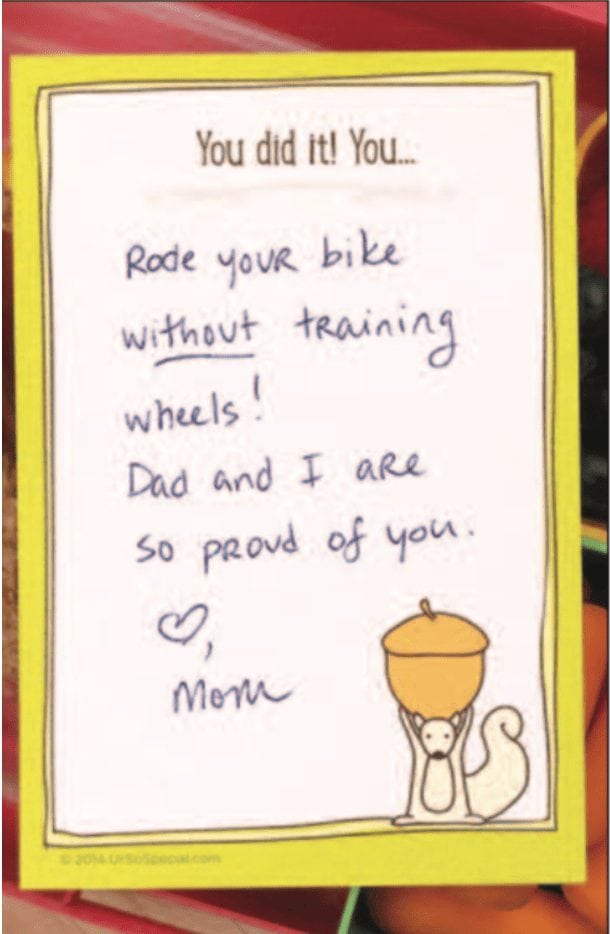 You did it! You...
Rode your bike
without training
wheels!
Dad and I are
so proud of you.
♡,
Mom
© 2014 UrSoSpecial.com